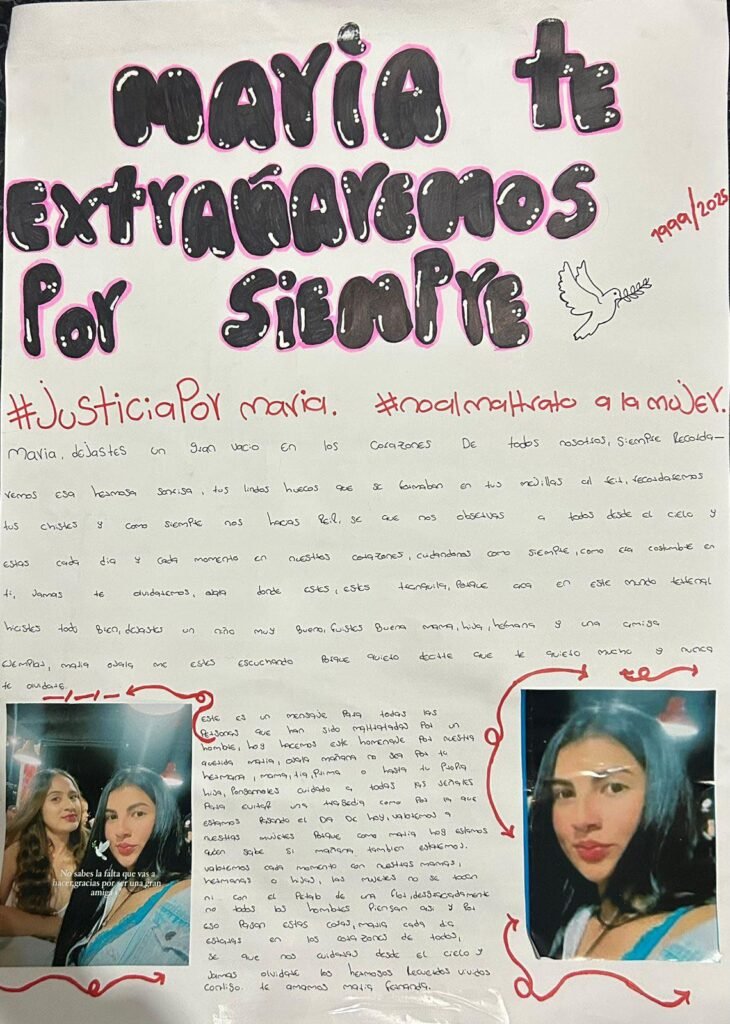 Maria te
extrañaremos
Por siempre
1999/2025
#justiciaPor maria. #noalmaltrato a la mujer.
Maria, dejastes un gran vacio en los corazones De todos nosotros, siempre Recorda-
remos esa hermosa sonrisa, tus lindos huecos que se formaban en tus mejillas al reir, recordaremos
tus chistes y como siempre nos hacias Reir, se que nos observas a todos desde el cielo y
estas cada dia y cada momento en nuestros corazones, cuidandonos como siempre, como era costumbre en
ti, Jamas te olvidaremos, ojala donde estes, estes tranquila, Porque aca en este mundo terrenal
hicistes todo Bien, dejastes un niño muy Bueno, fuistes Buena mama, hija, hermana y una amiga
ejemplar, maria ojala me estes escuchando Porque quiero decirte que te quiero mucho y nunca
te olvidare.
este es un mensaje Para todas las
Personas que han sido maltratadas Por un
hombre, hoy hacemos este homenaje Por nuestra
querida maria, ojala mañana no sea Por tu
hermana, mama, tia, Prima o hasta tu Propia
hija, Pongamosles cuidado a todas las señales
Para evitar una tragedia como Por la que
estamos Pasando el Dia De hoy, valoremos a
nuestras mujeres Porque como maria hoy estamos
quien sabe si mañana tambien estaremos.
valoremos cada momento con nuestras mamas,
hermanas o hijas, las mujeres no se tocan
ni con el Petalo de una flor, desgraciadamente
no todos los hombres Piensan asi y Por
eso Pasan estas cosas, maria cada dia
estaras en los corazones de todos,
se que nos cuidaras desde el cielo y
Jamas olvidare los hermosos Recuerdos vividos
contigo. te amamos maria fernanda.
No sabes la falta que vas a
hacer,gracias por ser una gran
amiga